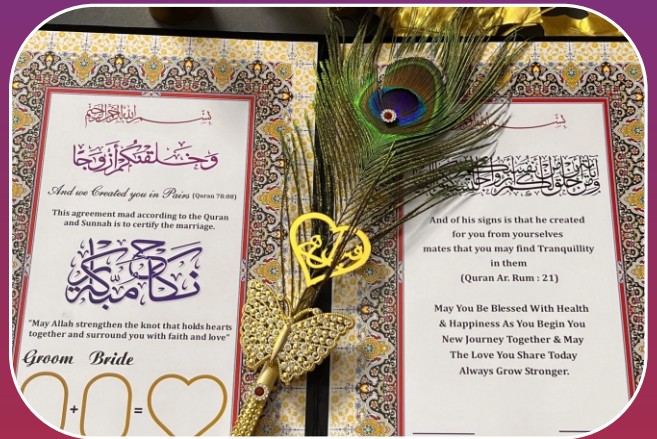 بسم الله الرحمن الرحيم
وخلقنكم أزوجا
And we Created you in Pairs (Quran 78:08)
This agreement mad according to the Quran
and Sunnah is to certify the marriage.
نكاح مبارك
"May Allah strengthen the knot that holds hearts
together and surround you with faith and love"
Groom Bride
+ =
بسم
And of his signs is that he created
for you from yourselves
mates that you may find Tranquillity
in them
(Quran Ar. Rum : 21)
May You Be Blessed With Health
& Happiness As You Begin You
New Journey Together & May
The Love You Share Today
Always Grow Stronger.